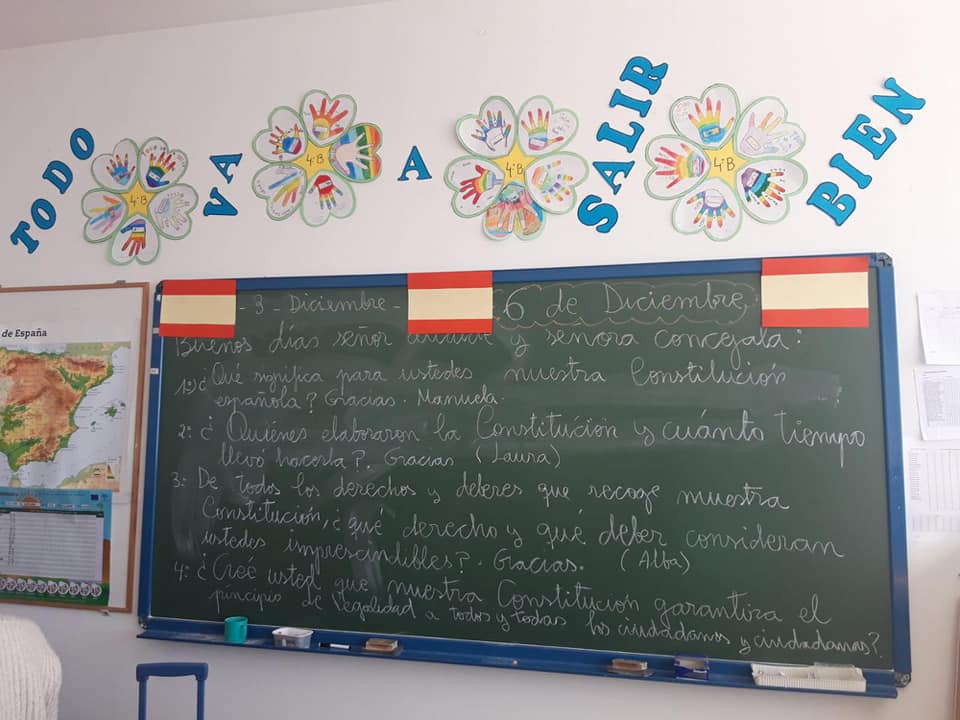 TODO VA A SALIR BIEN
4ºB
4ºB
4ºB
4ºB
de España
- 3 - Diciembre - 6 de Diciembre
Buenos días señor alcalde y señora concejala:
1ª) ¿Qué significa para ustedes nuestra Constitución
española? Gracias. Manuela.
2: ¿Quiénes elaboraron la Constitución y cuánto tiempo
llevó hacerla?. Gracias (Laura)
3: De todos los derechos y deberes que recoge nuestra
Constitución, ¿qué derecho y qué deber consideran
ustedes imprescindibles?. Gracias. (Alba)
4: ¿Cree usted que nuestra Constitución garantiza el
principio de legalidad a todos y todas los ciudadanos y ciudadanas?